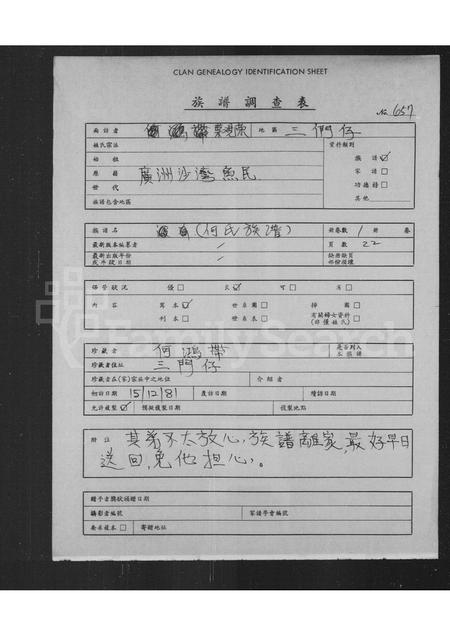 CLAN GENEALOGY IDENTIFICATION SHEET
族譜調查表
No. 657
面訪者 栗瑳榮 地區 三門仔
姓氏宗派 資料類別
始祖 族譜☑
原籍 廣洲沙 魚民 家譜☐
世代 功德冊☐
族譜包含地區 其他
族譜名 (何氏族譜) 卌卷數 1 卌 卷
最新版本編纂者 / 頁數 22
最新出版年份或手錄日期 / 缺卌缺頁部份損壞
保管狀況 優☐ 良☑ 可☐ 劣☐
內容 寫本☑ 世系圖☐ 掃圖☐
刊本☐ 世系表☐ 有關婦女資料(非僅姓氏)☐
珍藏者 何鴻帶 是否列入本族譜
珍藏者住址 三門仔
珍藏者在(家)宗族中之地位 介紹者
初訪日期 15/12/81 復訪日期 續訪日期
允許複製☑ 預擬複製日期 複製地點
附注 其弟不太放心,族譜離家,最好早日
送回,免他担心。
贈予者獎狀頒贈日期
攝影者編號 家譜學會編號
要求複本☐ 寄贈地址
FamilySearch